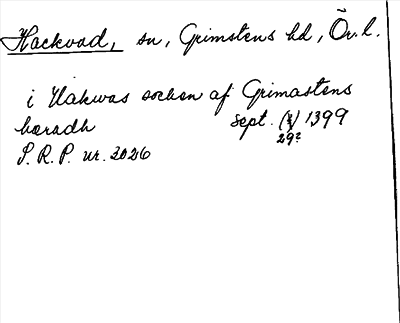 Hackvad, sn, Grimstens hd, Ör. l.
i Hakwas sochen af Grimastens
hæradh sept. (?) 1399
29?
S. R. P. nr. 3026